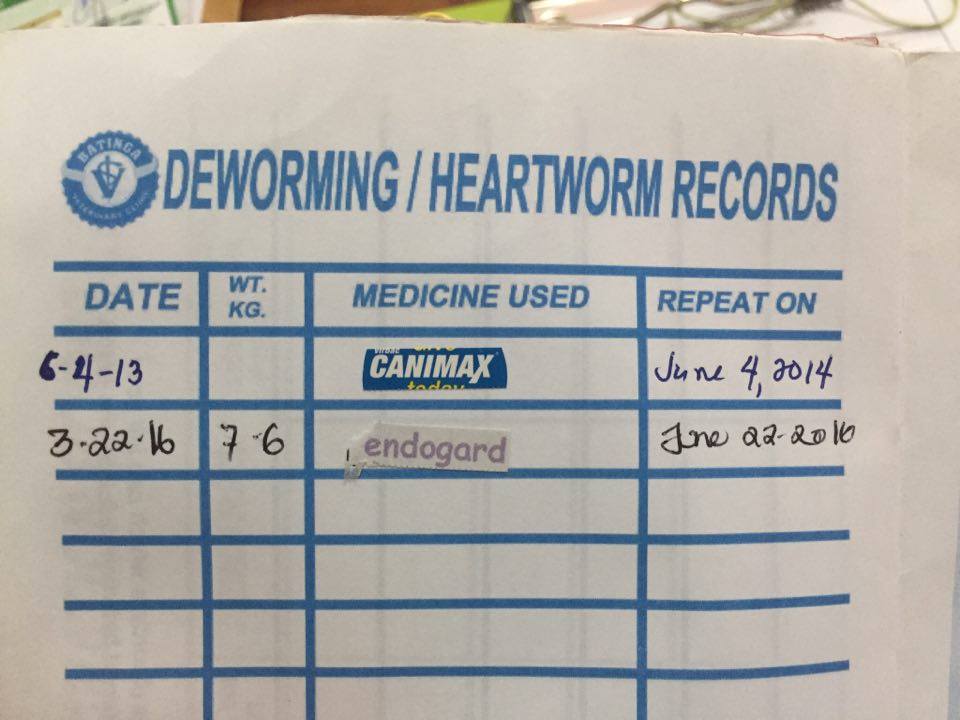 BATINGA
VETERINARY CLINIC
DEWORMING / HEARTWORM RECORDS
DATE WT. KG. MEDICINE USED REPEAT ON
6-4-13 Virbac CANIMAX today June 4, 2014
3-22-16 7-6 endogard June 22-2016